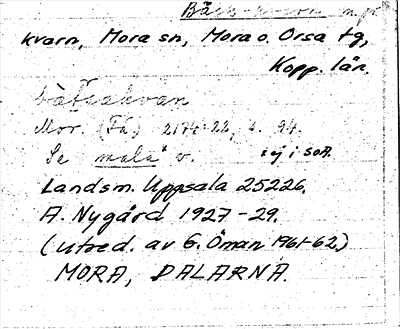 Bäck-kvarn n.pr.
kvarn, Mora sn, Mora o. Orsa tg,
Kopp. län.
Mor. (Få) 2174:22, s. 94.
Se mala v. ej i SOA.
Landsm. Uppsala 25226.
A. Nygård 1927-29.
(utred. av E. Öman 1961-62)
MORA, DALARNA.